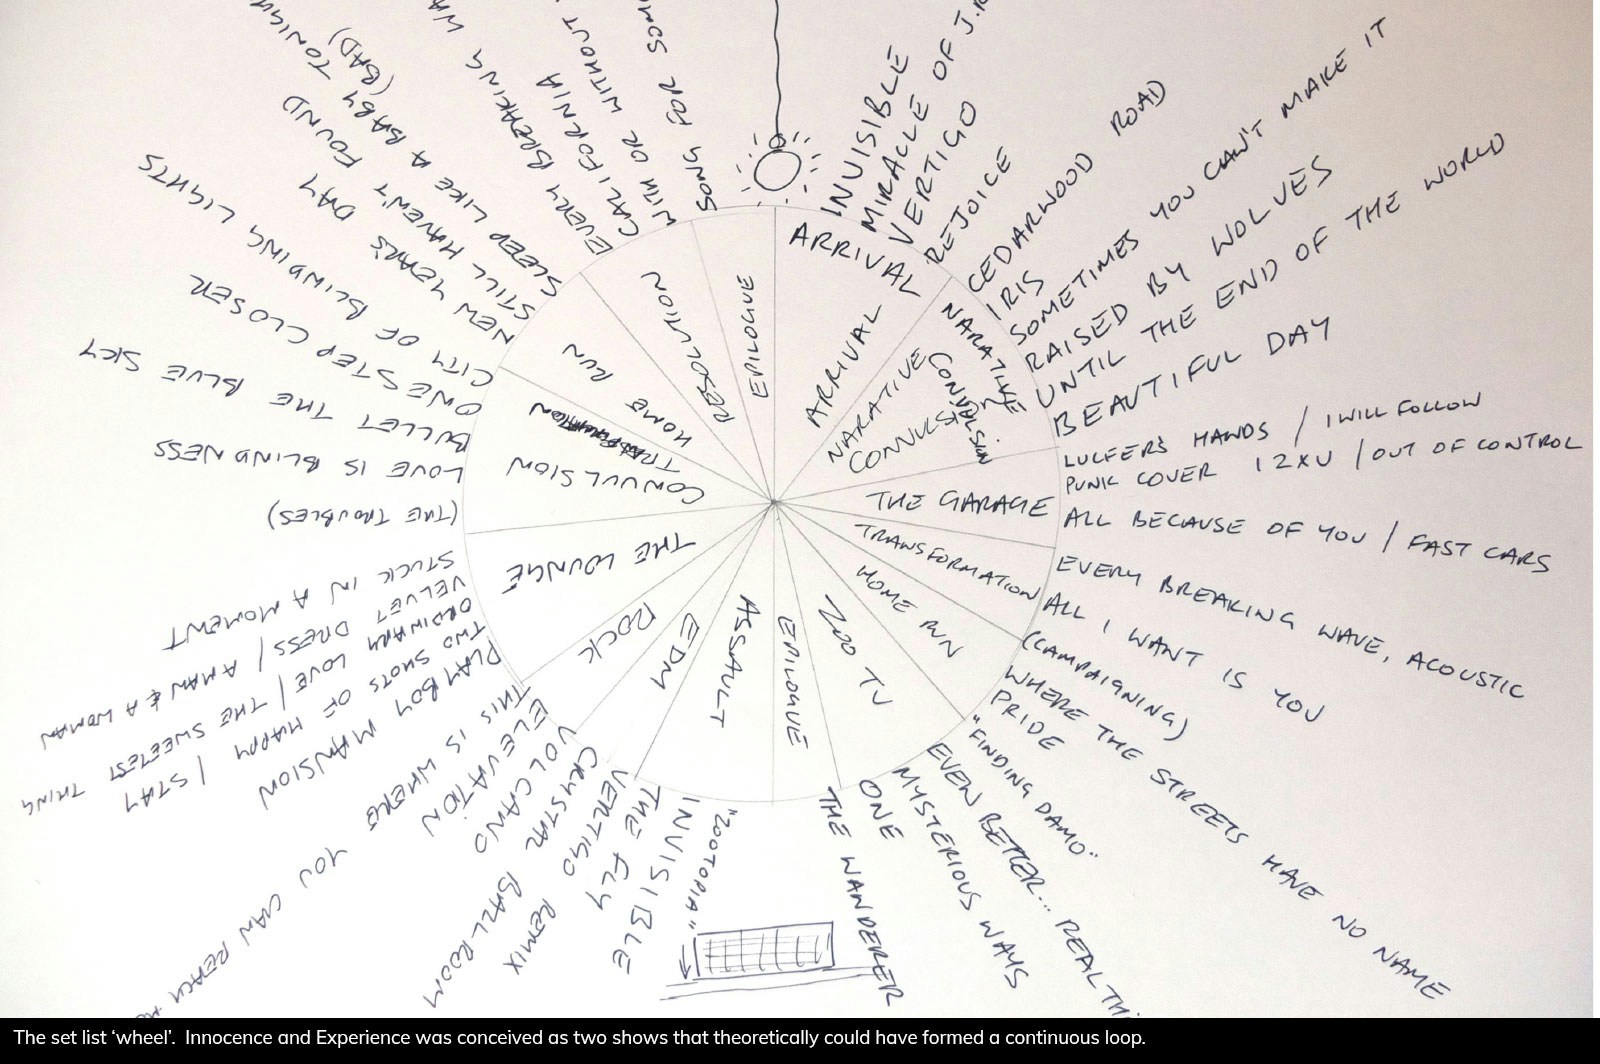 INVISIBLE
MIRACLE OF J.
VERTIGO
REJOICE
ARRIVAL
ARRIVAL
CEDARWOOD ROAD
IRIS
SOMETIMES YOU CAN'T MAKE IT
RAISED BY WOLVES
UNTIL THE END OF THE WORLD
BEAUTIFUL DAY
NARATIVE
CONVULSION
NARATIVE
CONVULSION
LUCFERS HANDS / I WILL FOLLOW
PUNK COVER 12XU / OUT OF CONTROL
ALL BECAUSE OF YOU / FAST CARS
THE GARAGE
EVERY BREAKING WAVE, ACOUSTIC
ALL I WANT IS YOU
TRANSFORMATION
(CAMPAIGNING)
WHERE THE STREETS HAVE NO NAME
PRIDE
HOME RUN
"FINDING DAMO"
EVEN BETTER... REAL THI
MYSTERIOUS WAYS
ONE
ZOO TV
THE WANDERER
EPILOGUE
"ZOOTOPIA"
INVISIBLE
THE FLY
VERTIGO REMIX
ASSAULT
CRYSTAL BALLROOM
VOLCANO
EDM
ELEVATION
THIS IS WHERE YOU CAN REACH
ROCK
PLAYBOY MANSION
TWO SHOTS OF HAPPY / STAY
ORDINARY LOVE / THE SWEETEST THING
VELVET DRESS / A MAN & A WOMAN
STUCK IN A MOMENT
THE LOUNGE
(THE TROUBLES)
LOVE IS BLINDNESS
BULLET THE BLUE SKY
ONE STEP CLOSER
CITY OF BLINDING LIGHTS
CONVULSION
NEW YEAR'S DAY
STILL HAVEN'T FOUND
SLEEP LIKE A BABY TONIGH
(BAD)
HOME RUN
EVERY BREAKING WA
CALIFORNIA
WITH OR WITHOUT
RESOLUTION
SONG FOR SOM
EPILOGUE
The set list ‘wheel’. Innocence and Experience was conceived as two shows that theoretically could have formed a continuous loop.